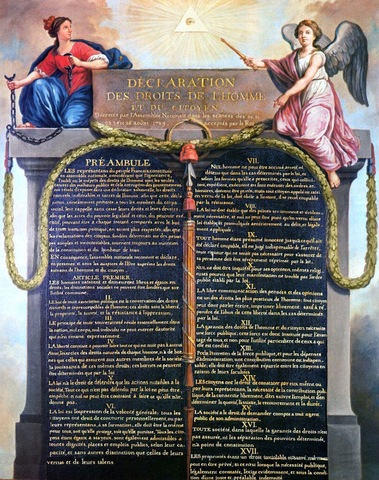 DÉCLARATION
DES DROITS DE L'HOMME
ET DU CITOYEN,
Décretés par l'Assemblée Nationale dans les séances des 20, 21
23, 24 et 26 août 1789, acceptés par le Roi
PRÉAMBULE
LES représentans du peuple Francois, constitués
en assemblée nationale, considérant que l'ignorance,
l'oubli ou le mépris des droits de l'homme sont les seules
causes des malheurs publics et de la corruption des gouvernemens
ont résolu d'exposer dans une déclaration solemnelle, les droits
naturels, inaliénables et sacrés de l'homme; afin que cette décla-
ration, constamment présente à tous les membres du corps
social, leur rappelle sans cesse leurs droits et leurs devoirs;
afin que les actes du pouvoir législatif et ceux du pouvoir exé-
cutif, pouvant être à chaque instant comparés avec le but
de toute institution politique, en soient plus respectés; afin que
les réclamations des citoyens, fondées désormais sur des princi-
pes simples et incontestables, tournent toujours au maintien
de la constitution et du bonheur de tous.
EN conséquence, l'assemblée nationale reconnoit et déclare,
en présence et sous les auspices de l'Etre suprême les droits
suivans de l'homme et du citoyen.
ARTICLE PREMIER.
LES hommes naissent et demeurent libres et égaux en
droits. les distinctions sociales ne peuvent être fondées que sur
l'utilité commune.
II.
LE but de toute association politique est la conservation des droits
naturels et imprescriptibles de l'homme; ces droits sont la liberté,
la propriété, la sureté, et la résistance à l'oppression.
III.
LE principe de toute souveraineté réside essentiellement dans
la nation, nul corps, nul individu ne peut exercer d'autorité
qui n'en émane expressément.
IV.
LA liberté consiste à pouvoir faire tout ce qui ne nuit pas à autrui
Ainsi, l'exercice des droits naturels de chaque homme, n'a de bor-
nes que celles qui assurent aux autres membres de la société
la jouissance de ces mêmes droits; ces bornes ne peuvent
être déterminées que par la loi.
V.
LA loi n'a le droit de défendre que les actions nuisibles à la
société. Tout ce qui n'est pas défendu par la loi ne peut être
empêché, et nul ne peut être contraint à faire ce qu'elle n'or-
donne pas.
VI.
LA loi est l'expression de la volonté générale; tous les
citoyens ont droit de concourir personnellement, ou par
leurs représentans, à sa formation; elle doit être la même
pour tous, soit qu'elle protege, soit qu'elle punisse. Tous les cito-
yens étant égaux à ses yeux, sont également admissibles à
toutes dignités, places et emplois publics, selon leur capa-
cité, et sans autres distinction que celles de leurs
vertus et de leurs talens.
VII.
NUL homme ne peut être accusé, arreté ni
détenu que dans les cas déterminés par la loi, et
selon les formes qu'elle a prescrites, ceux qui sollici-
tent, expédient, exécutent ou font exécuter des ordres ar-
bitraires, doivent être punis; mais tout citoyen appelé ou saisi
en vertu de la loi, doit obéir à l'instant, il se rend coupable
par la résistance.
VIII.
LA loi ne doit établir que des peines strictement et évidem-
ment nécessaires, et nul ne peut être puni qu'en vertu d'une
loi établie et promulguée antérieurement au délit, et légale-
ment appliquée.
IX.
TOUT homme étant présumé innocent jusqu'à ce qu'il
ait été déclaré coupable, s'il est jugé indispensable de l'arrêter, toute
rigueur qui ne seroit pas nécessaire pour s'assurer de sa
personne doit être sévérement réprimée par la loi.
X.
NUL ne doit être inquiété pour ses opinions, mêmes religi-
euses pourvu que leur manifestation ne trouble pas l'ordre
public établi par la loi.
XI.
LA libre communication des pensées et des opinions est
un des droits les plus précieux de l'homme; tout citoyen
peut donc parler, écrire, imprimer librement; sauf à ré-
pondre de l'abus de cette liberté dans les cas déterminés
par la loi.
XII.
LA garantie des droits de l'homme et du citoyen nécessite
une force publique; cette force est donc instituée pour l'avan-
tage de tous, et non pour l'utilité particuliere de ceux à qui
elle est confiée.
XIII.
POUR l'entretien de la force publique, et pour les dépenses
d'administration, une contribution commune est indispen-
sable; elle doit être également répartie entre les citoyens en
raison de leurs facultés.
XIV.
LES citoyens ont le droit de constater par eux même ou par
leurs représentans, la nécessité de la contribution publi-
que, de la consentir librement, d'en suivre l'emploi, et d'en
déterminer la quotité, l'assiette, le recouvrement et la durée.
XV.
LA société a le droit de demander compte à tout agent
public de son administration.
XVI.
TOUTE société, dans laquelle la garantie des droits n'est
pas assurée, ni la séparation des pouvoirs déterminée,
n'a point de constitution.
XVII.
LES propriétés étant un droit inviolable et sacré, nul ne
peut en être privé, si ce n'est lorsque la nécessité publique,
légalement constatée, l'exige évidemment, et sous la condi-
tion d'une juste et préalable indemnité.